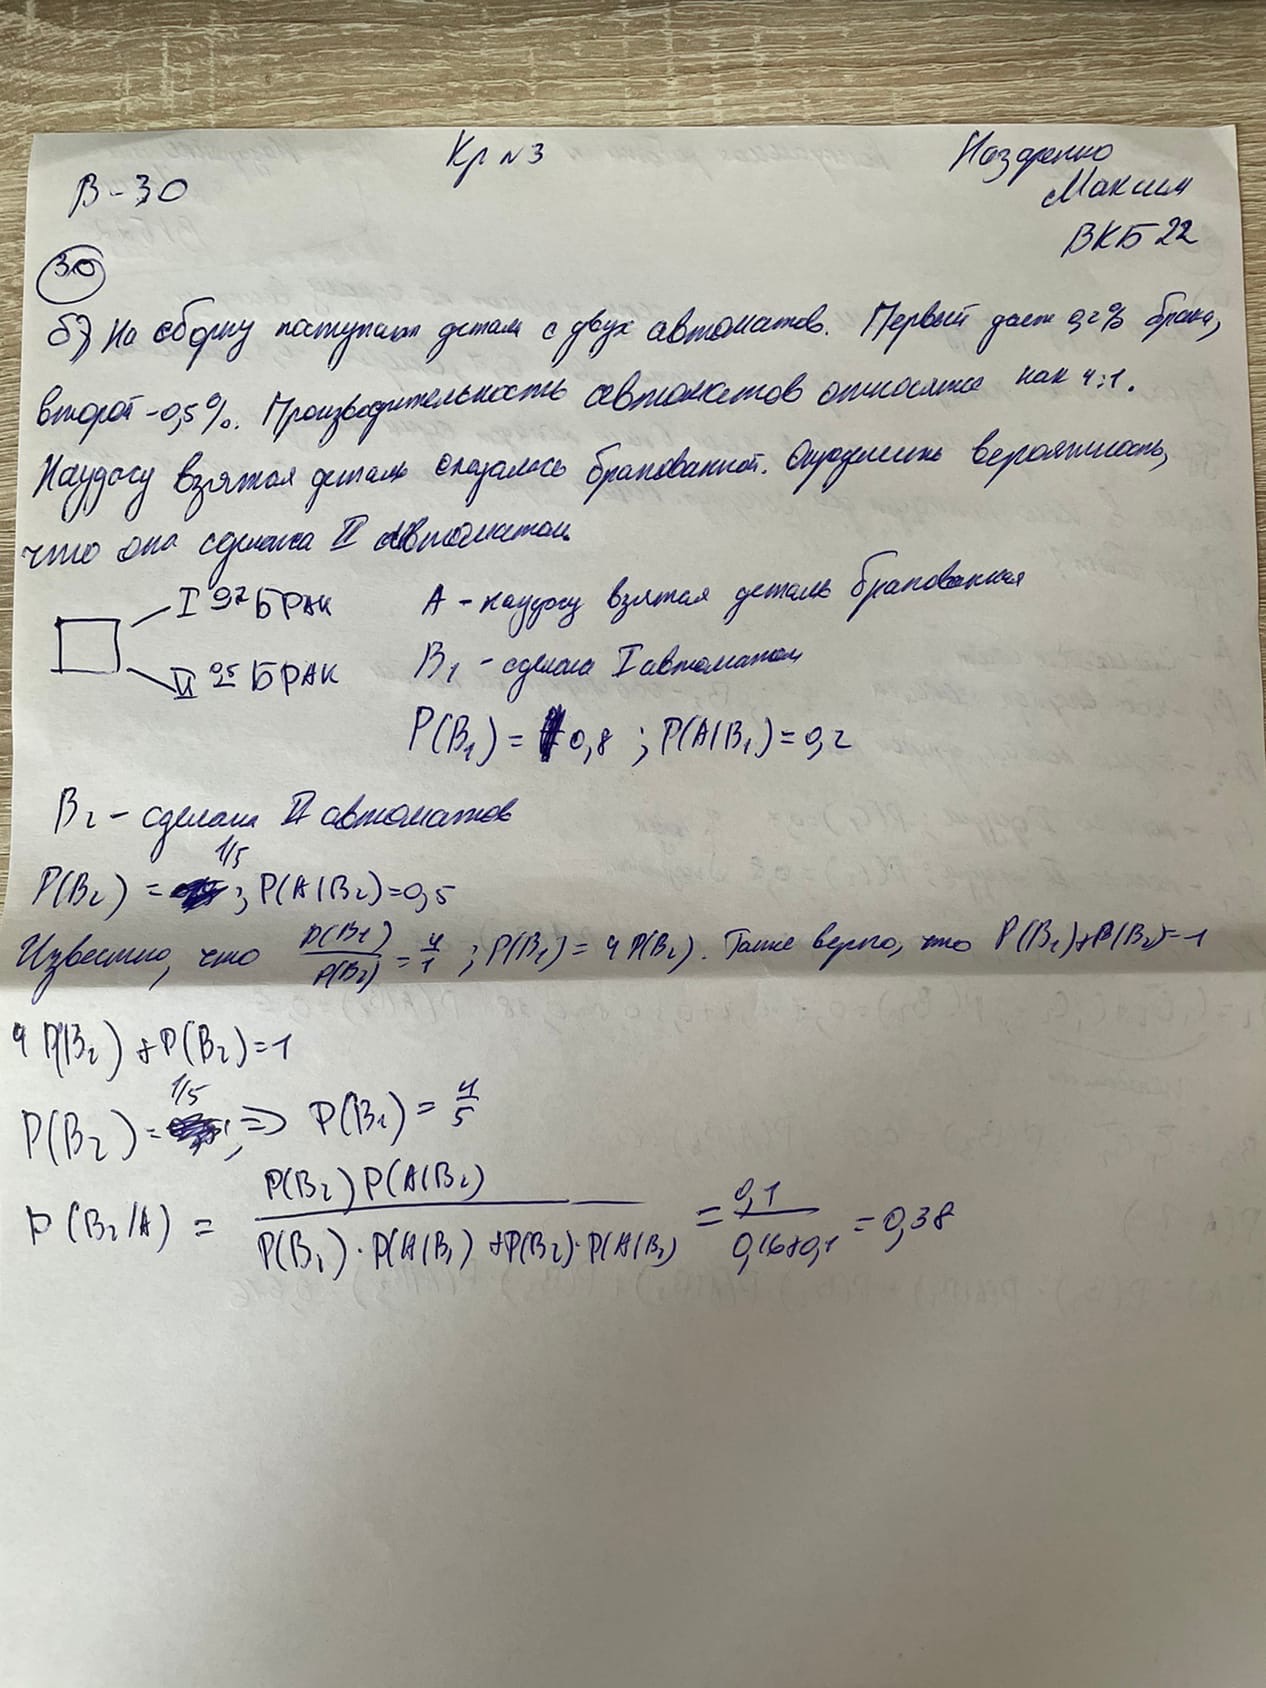 Кр №3
Наздренко
Максим
ВКБ 22
В-30
30
б) На сборку поступают детали с двух автоматов. Первый даёт 0,2% брака,
второй -0,5%. Производительность автоматов относятся как 4:1.
Наудачу взятая деталь оказалась бракованной. Определить вероятность,
что она сделана II автоматом.
I 0,2 БРАК
II 0,5 БРАК
А - наудачу взятая деталь бракованная
B₁ - сделана I автоматом
P(B₁) = 0,8 ; P(A|B₁)=0,2
B₂ - сделана II автоматов
P(B₂) = 1/5 ; P(A|B₂)=0,5
Известно, что P(B₁)/P(B₂) = 4/1 ; P(B₁) = 4 P(B₂). Также верно, что P(B₁)+P(B₂)=1
4 P(B₂) + P(B₂)=1
P(B₂) = 1/5, => P(B₁) = 4/5
P(B₂/A) = P(B₂) P(A|B₂) / P(B₁)·P(A|B₁) + P(B₂)·P(A|B₂) = 0,1 / 0,16+0,1 = 0,38